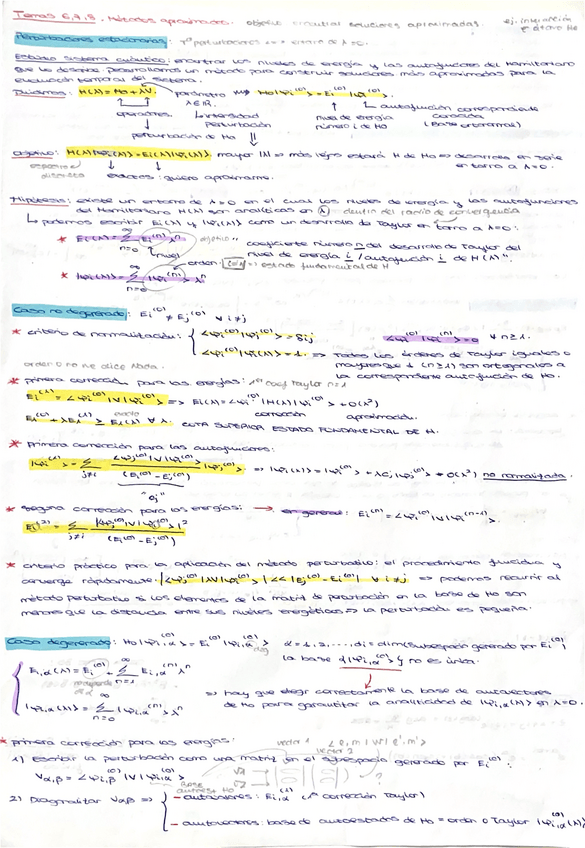 Temas 6,7,8. Métodos aproximados. objetivo: encontrar soluciones aproximadas. ej. ionización e átomo He
Perturbaciones estacionarias: 1º perturbaciones entorno de λ=0.
Estudio sistema cuántico: encontrar los niveles de energía y las autofunciones del Hamiltoniano
que lo describe desarrollamos un método para construir soluciones más aproximadas para la
evolución temporal del sistema.
Dividimos: H(λ) = H₀ + λV parámetro H₀|ψᵢ⁽⁰⁾> = Eᵢ⁽⁰⁾|ψᵢ⁽⁰⁾>
λ∈ℝ autofunción correspondiente
operadores intensidad perturbación nivel de energía número i de H₀ conocida (Base ortonormal)
perturbación de H₀
objetivo: H(λ)|ψᵢ(λ)> = Eᵢ(λ)|ψᵢ(λ)> mayor |λ| => más lejos estará H de H₀ => desarrollo en serie
espectro discreto entorno a λ=0.
exactos: quiero aproximarme.
Hipótesis: existe un entorno de λ=0 en el cual los niveles de energía y las autofunciones
del Hamiltoniano H(λ) son analíticas en λ dentro del radio de convergencia
↳ podemos escribir Eᵢ(λ) y |ψᵢ(λ)> como un desarrollo de Taylor en torno a λ=0:
* Eᵢ(λ) = Σ_{n=0}^{∞} Eᵢ⁽ⁿ⁾ λⁿ objetivo "coeficiente número n del desarrollo de Taylor del
nivel orden nivel de energía i / autofunción i de H(λ)".
i=0 => estado fundamental de H
* |ψᵢ(λ)> = Σ_{n=0}^{∞} |ψᵢ⁽ⁿ⁾> λⁿ
Caso no degenerado: Eᵢ⁽⁰⁾ ≠ Eⱼ⁽⁰⁾ ∀ i≠j
* criterio de normalización: { <ψᵢ⁽⁰⁾|ψⱼ⁽⁰⁾> = δij <ψᵢ⁽⁰⁾|ψᵢ⁽ⁿ⁾> = 0 ∀ n≥1.
<ψᵢ⁽⁰⁾|ψᵢ(λ)> = 1. => Todos los órdenes de Taylor iguales o
mayores que 1 (n≥1) son ortogonales a
orden 0 no me dice nada. la correspondiente autofunción de H₀.
* primera corrección para las energías: 1er coef Taylor n=1
Eᵢ⁽¹⁾ = <ψᵢ⁽⁰⁾|V|ψᵢ⁽⁰⁾> => Eᵢ(λ) = <ψᵢ⁽⁰⁾|H(λ)|ψᵢ⁽⁰⁾> + O(λ²)
exacto corrección aproximación.
Eᵢ⁽⁰⁾ + λEᵢ⁽¹⁾ ≥ Eᵢ(λ) ∀ λ. COTA SUPERIOR ESTADO FUNDAMENTAL DE H.
* primera corrección para las autofunciones:
|ψᵢ⁽¹⁾> = Σ_{j≠i} <ψⱼ⁽⁰⁾|V|ψᵢ⁽⁰⁾> / (Eᵢ⁽⁰⁾ - Eⱼ⁽⁰⁾) |ψⱼ⁽⁰⁾> => |ψᵢ(λ)> = |ψᵢ⁽⁰⁾> + λcⱼ|ψⱼ⁽⁰⁾> + O(λ²) no normalizada.
"cⱼ"
* segunda corrección para las energías: → en general: Eᵢ⁽ⁿ⁾ = <ψᵢ⁽⁰⁾|V|ψᵢ⁽ⁿ⁻¹⁾>.
Eᵢ⁽²⁾ = Σ_{j≠i} |<ψⱼ⁽⁰⁾|V|ψᵢ⁽⁰⁾>|² / (Eᵢ⁽⁰⁾ - Eⱼ⁽⁰⁾)
* criterio práctico para la aplicación del método perturbativo: el procedimiento funciona y
converge rápidamente. |<ψᵢ⁽⁰⁾|λV|ψⱼ⁽⁰⁾>| << |Eⱼ⁽⁰⁾ - Eᵢ⁽⁰⁾| ∀ i≠j => podemos recurrir al
método perturbativo si los elementos de la matriz de perturbación en la base de H₀ son
menores que la distancia entre sus niveles energéticos => la perturbación es pequeña.
Caso degenerado: H₀|ψᵢ,α⁽⁰⁾> = Eᵢ⁽⁰⁾|ψᵢ,α⁽⁰⁾> α = 1, 2, ..., dᵢ = dim(subespacio generado por Eᵢ⁽⁰⁾)
deg la base {|ψᵢ,α⁽⁰⁾>} no es única.
{ Eᵢ,α(λ) = Eᵢ⁽⁰⁾ + Σ Eᵢ,α⁽ⁿ⁾ λⁿ
|ψᵢ,α(λ)> = Σ_{n=0}^{∞} |ψᵢ,α⁽ⁿ⁾> λⁿ => hay que elegir correctamente la base de autovectores
de H₀ para garantizar la analiticidad de |ψᵢ,α(λ)> en λ=0.
* primera corrección para las energías: vector 1 <l,m|V|l',m'> vector 2
1) Escribir la perturbación como una matriz en el subespacio generado por Eᵢ⁽⁰⁾.
Vα,β = <ψᵢ,β⁽⁰⁾|V|ψᵢ,α⁽⁰⁾>
base autoest H₀
2) Diagonalizar Vα,β => { - autovalores: Eᵢ,α⁽¹⁾ (1ª corrección Taylor)
- autovectores: base de autoestados de H₀ = orden 0 Taylor |ψᵢ,α(λ)>